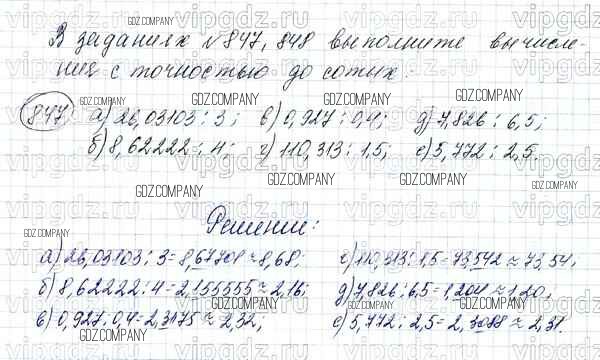 В заданиях №847, 848 выполните вычисле-
ния с точностью до сотых:
847 а) 26,03103 : 3; в) 0,927 : 0,4; д) 7,826 : 6,5;
б) 8,62222 : 4; г) 110,313 : 1,5; е) 5,772 : 2,5.
Решение:
а) 26,03103 : 3 = 8,67701 ≈ 8,68; г) 110,313 : 1,5 = 73,542 ≈ 73,54;
б) 8,62222 : 4 = 2,155555 ≈ 2,16; д) 7,826 : 6,5 = 1,204 ≈ 1,20;
в) 0,927 : 0,4 = 2,3175 ≈ 2,32; е) 5,772 : 2,5 = 2,3088 ≈ 2,31.
GDZ.COMPANY
vipgdz.ru